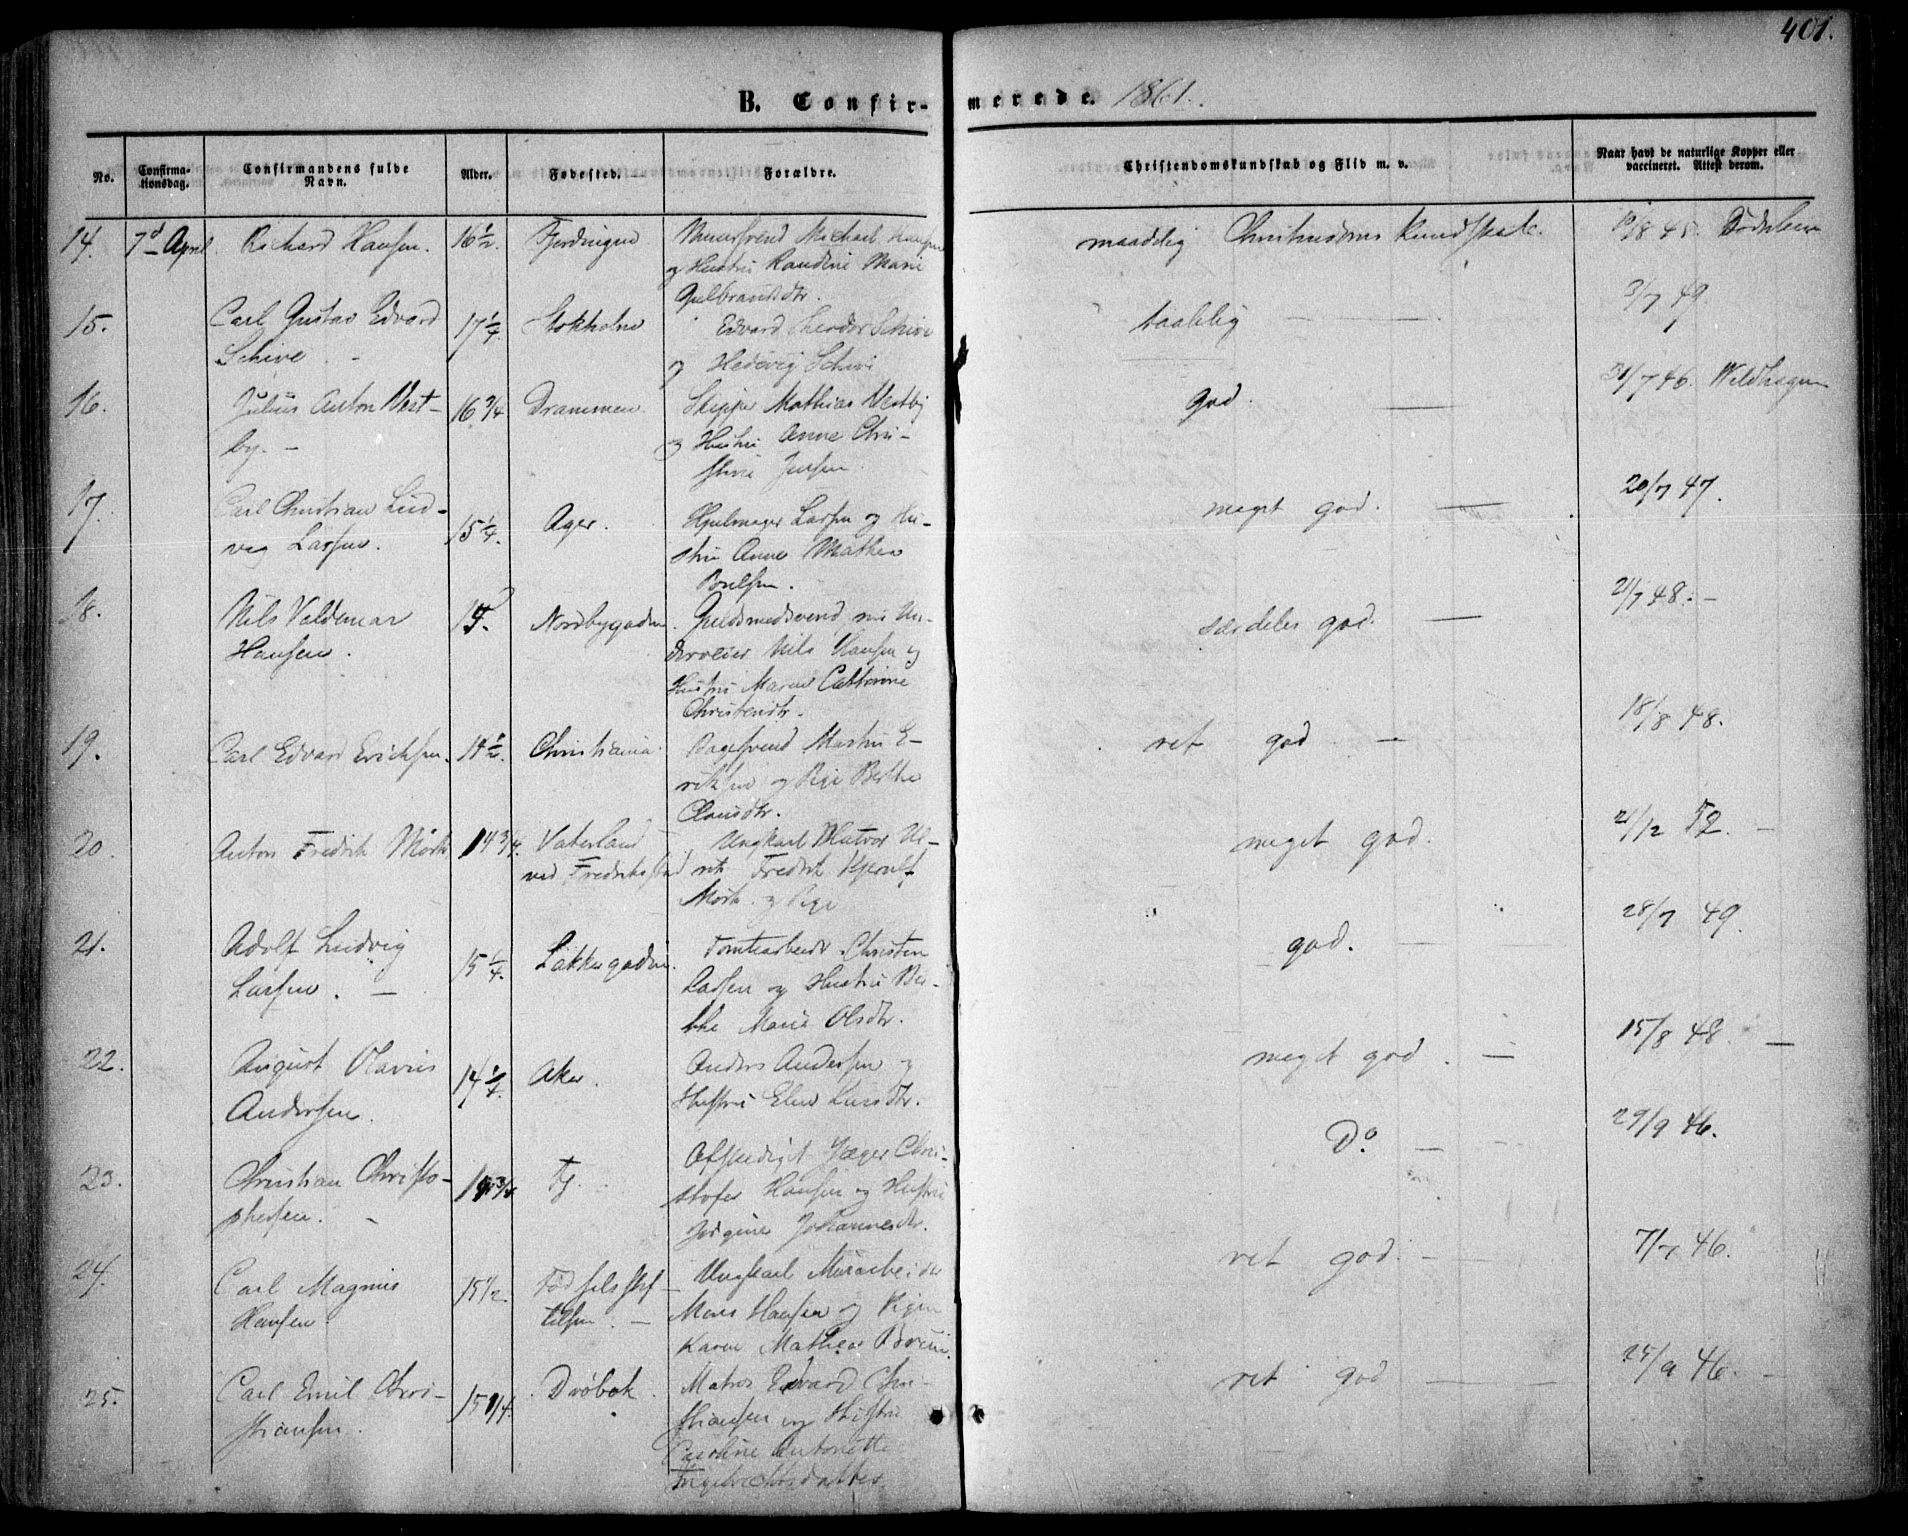 401.
B. Confir- merede. 1861.
No. Confirma-tionsdag. Confirmandens fulde Navn. Alder. Fødested. Forældre. Christendomskundskab og Flid m. v. Naar havt de naturlige Kopper eller vaccineret. Attest derom.
14. 7d April Richard Hansen. 16 1/2. Fjerdingen Muursvend Michael Hansen
og Hustru Randine Marie
Gulbrandsdtr.
maadelig Christendoms Kundskab. /8 45.
15. Carl Gustav Edvard
Schive. -
17 1/4 Stokholm Edvard Theodor Schive
og Hedevig Schive
taalelig — — 3/7 49.
16. Julius Anton Vest-
by. -
16 3/4 Drammen. Skipper Mathias Vestby
og Hustru Anne Chri-
stine Jensen.
god. — 31/7 46. Weldhagen
17. Carl Christian Lud-
vig Larsen.
15 1/4. Ager. Hjulmager Larsen og Hu-
stru Anne Mathea
Boelsen.
meget god. — 20/7 47.
18. Nils Valdemar
Hansen.
14. Nordbygaden. Guldsmedsvend, nu Un-
derveier Nils Hansen og
Hustru Maren Cathrine
Christensdtr.
særdeles god. — 21/7 48. -
19. Carl Edvard Ericksen. 14 1/2. Christiania. Bagersvend Martin E-
riksen og Pige Berthe
Clausdtr.
ret god — 18/8 48.
20. Anton Fredrik Mørk 14 3/4. Vaterland
ved Fredrikstad
Ungkarl Ul-
rik Fredrik Kjerulf
Mørk. og Pige
meget god. 21/12 52. -
21. Adolf Ludvig
Larsen. —
15 1/4. Lakkegaden. Tomtearbeider Christen
Larsen og Hustru Ber-
the Marie Olsdtr.
god. — 28/7 49.
22. August Olavus
Andersen.
14 1/4. Aker. Anders Andersen og
Hustru Elen Larsdtr.
meget god. — 15/8 48. —
23. Christian Christo-
phersen. -
14 3/4 Fj. Afskediget Jæger Chri-
stofer Hansen og Hustru
Jørgine Johannesdtr.
Do — 29/9 46.
24. Carl Magnus
Hansen.
15 1/2. Fødselsstif-
telsen. — Ungkarl Murarbeider
Mons Hansen og Pigen
Karen Mathea
ret god. — 7/7 46.
25. Carl Emil Chri-
stiansen.
15 1/4. Drøbak. Matros Edvard Chri-
stiansen og Hustru
Caroline Antonette
Engebrechtsdatter
ret god — 25/9 46. -